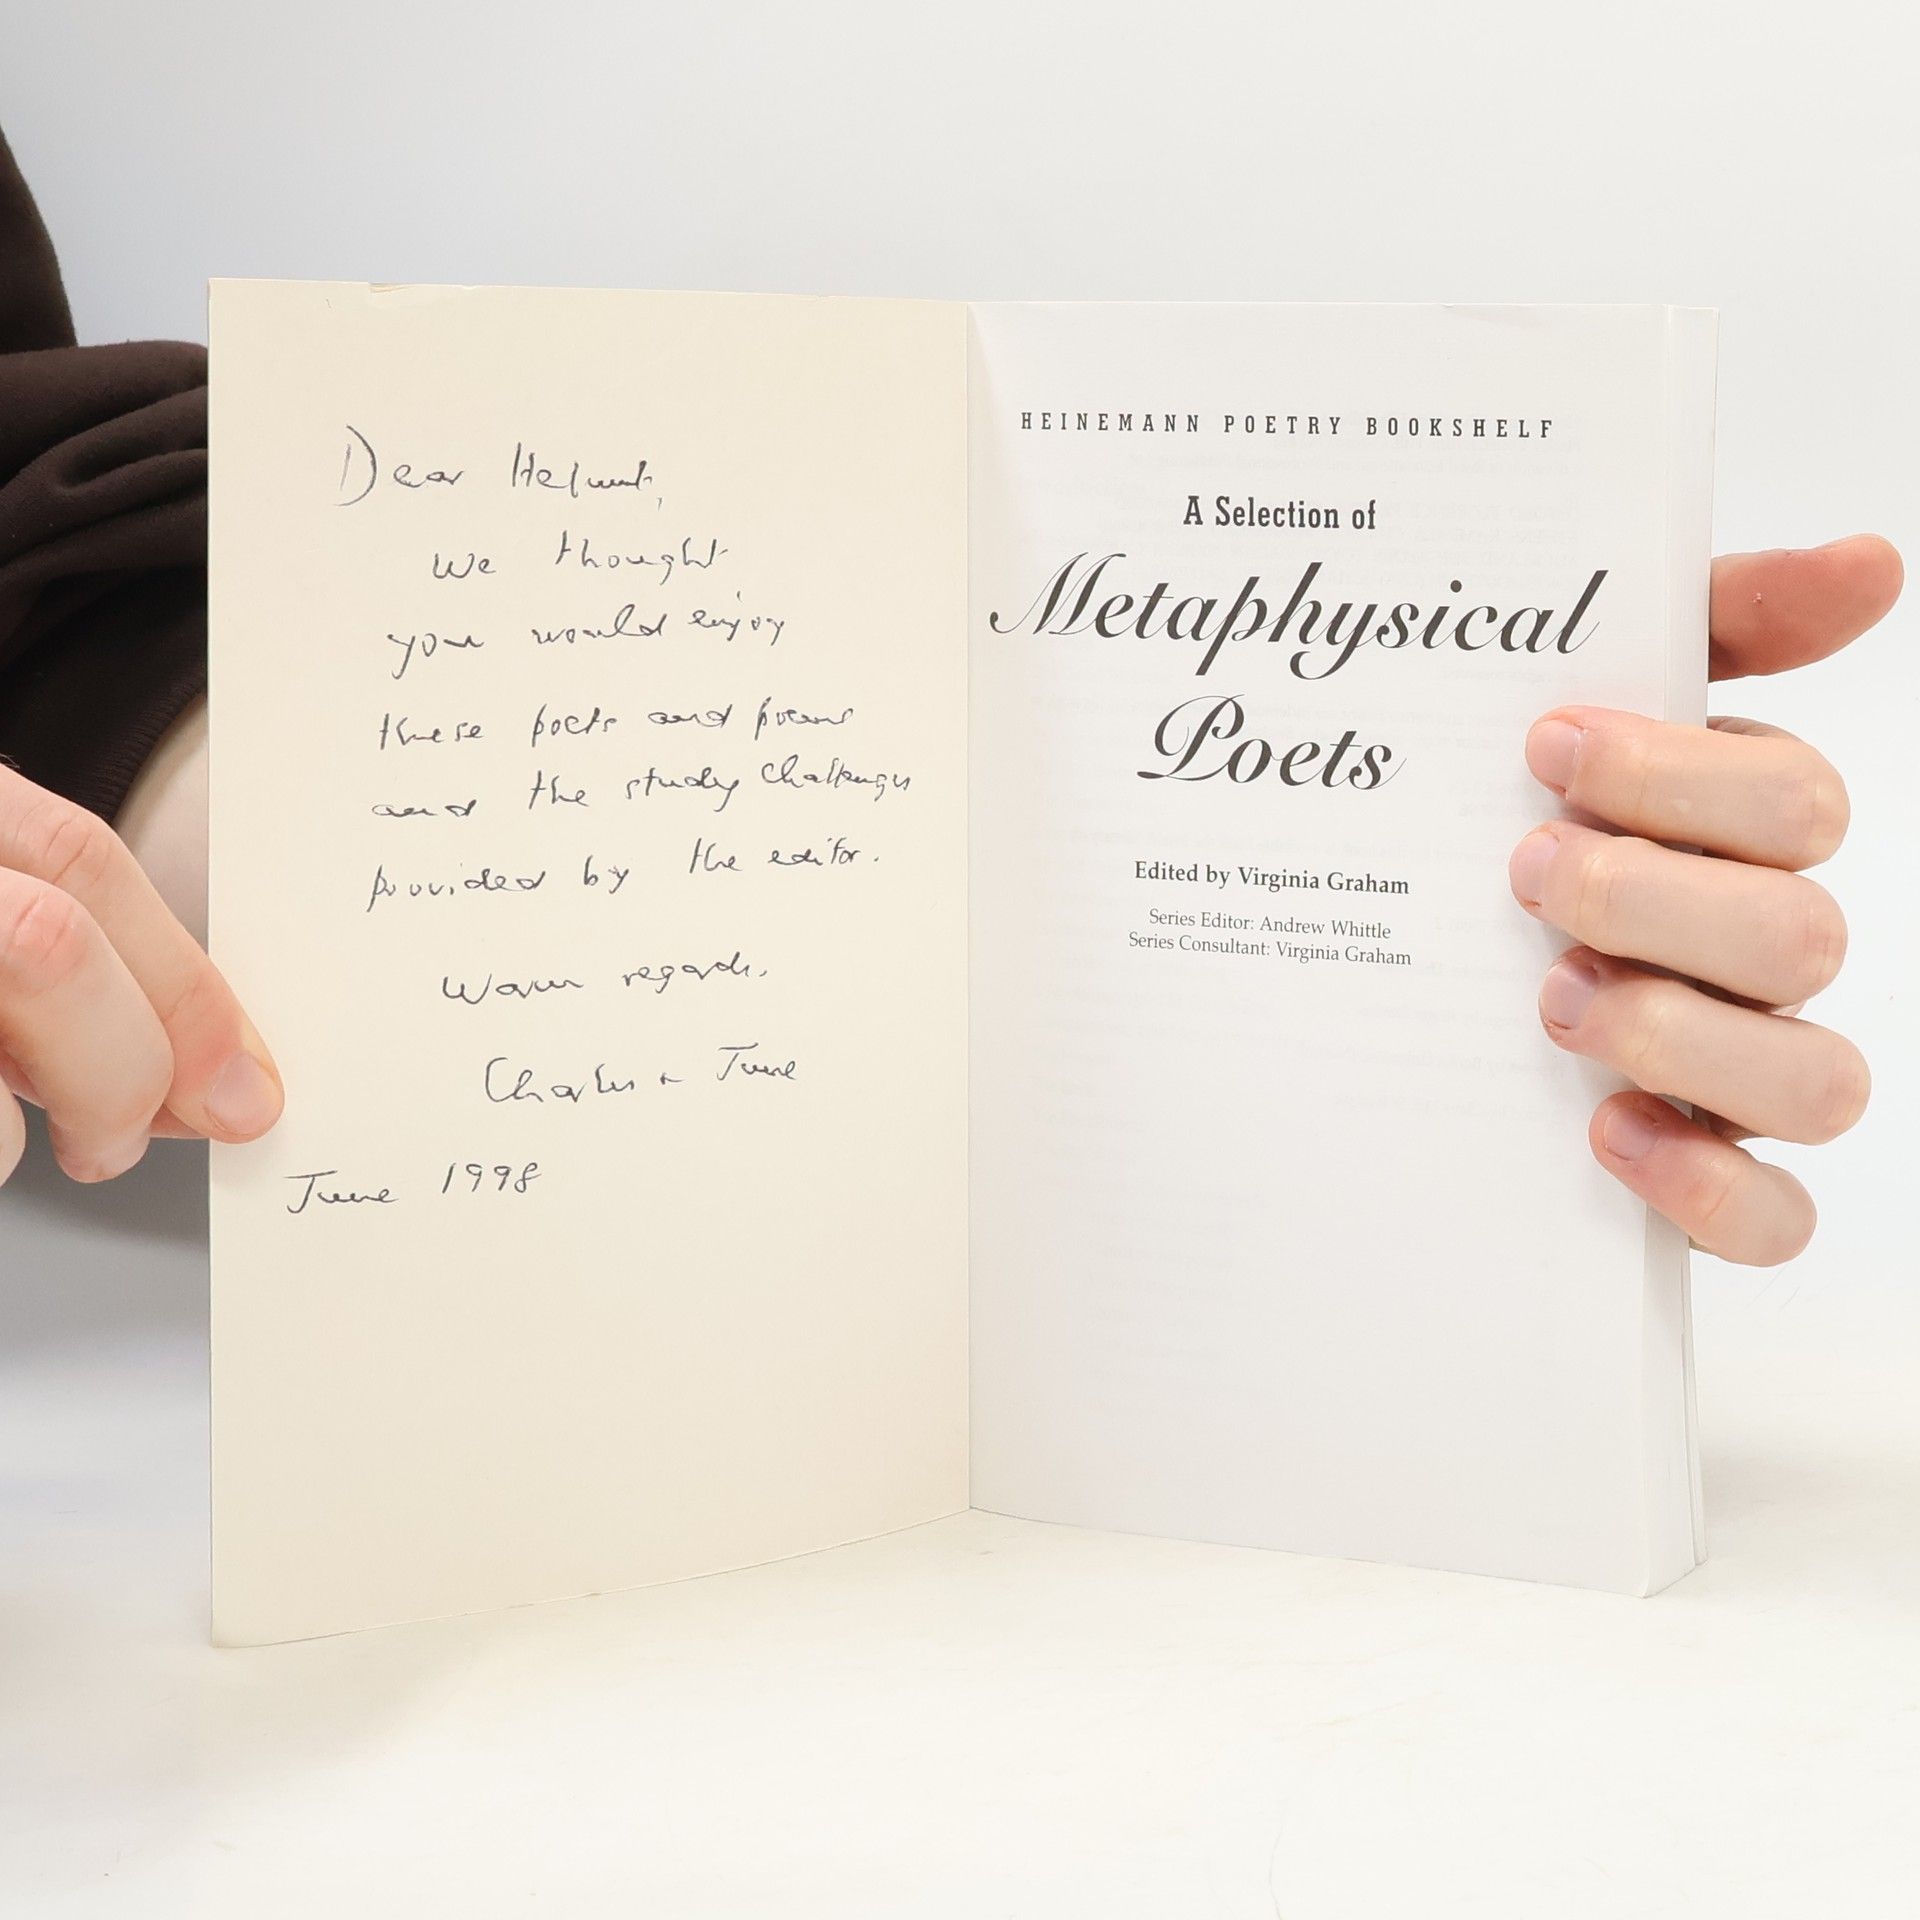 Dear Helmut,
we thought
you would enjoy
these poets and poems
and the study challenges
provided by the editor.
Warm regards.
Charles + June
June 1998
HEINEMANN POETRY BOOKSHELF
A Selection of
Metaphysical
Poets
Edited by Virginia Graham
Series Editor: Andrew Whittle
Series Consultant: Virginia Graham